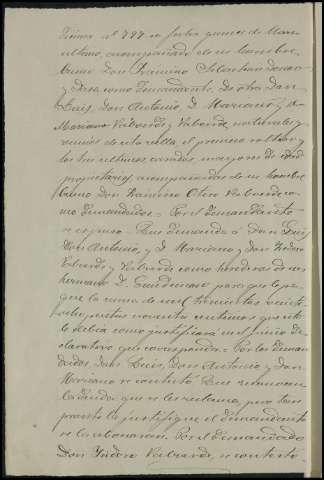 número 777 en fecha quince de Mar
último, acompañado de su hombre
bueno Don Francisco Sebastian
y como demandante. De otra Don
Luis, Don Antonio, D. Mariano y D.
Valverde y Valverde, naturales y
vecinos de esta villa, el primero soltero y
los tres últimos casados, mayores de edad
propietarios, acompañados de su hombre
bueno Don Francisco Otero Valverde co-
mo demandados = Por el demandante
se expuso = Que demanda a Don Luis
Don Antonio, y D. Mariano y Don Isidoro
Valverde y Valverde como herederos de su
hermano D. para que le pa-
gue la suma de mil trescientas veinte
pesetas noventa centimos que este
le debia como justificará en el juicio de-
claratorio que corresponda = Por los deman-
dados Don Luis, Don Antonio y Don
Mariano se contestó = Que
la deuda que se les reclama, pero tan
pronto la justifique el demandante
se la abonaran. Por el demandado
Don Isidoro Valverde, se contestó =